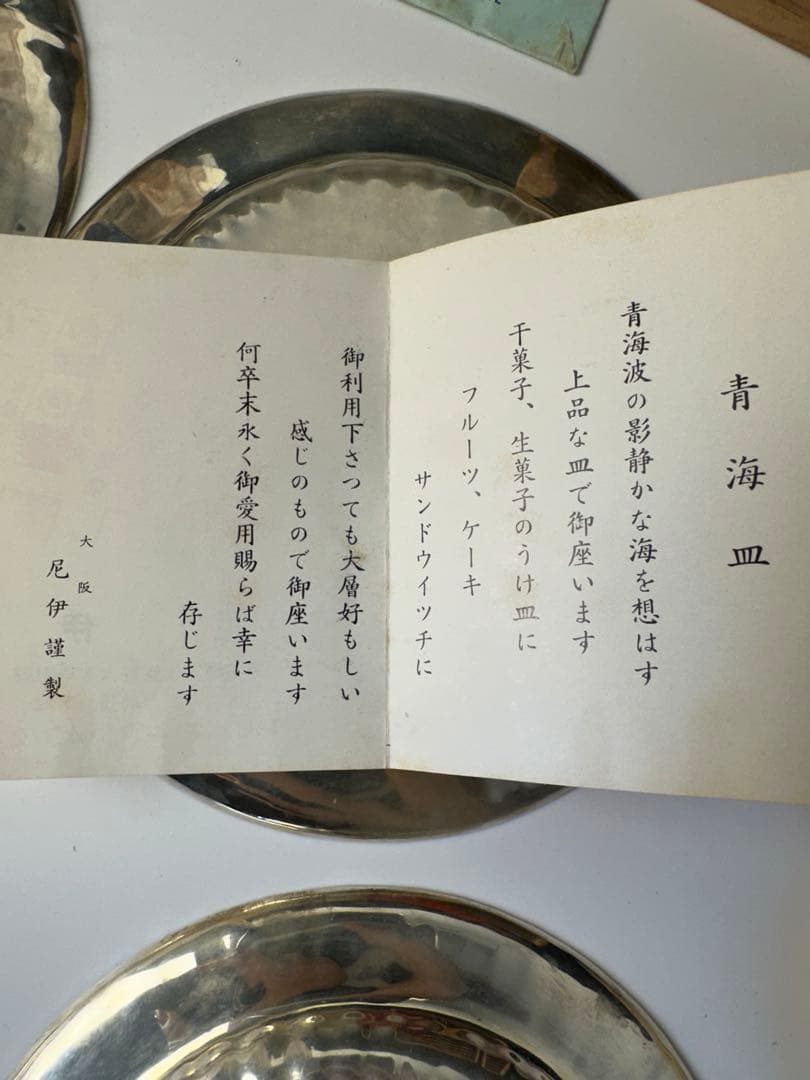 青海皿
青海波の影静かな海を想はす
上品な皿で御座います
干菓子、生菓子のうけ皿に
フルーツ、ケーキ
サンドウイツチに
御利用下さつても大層好もしい
感じのもので御座います
何卒末永く御愛用賜らば幸に
存じます
大阪
尼伊謹製